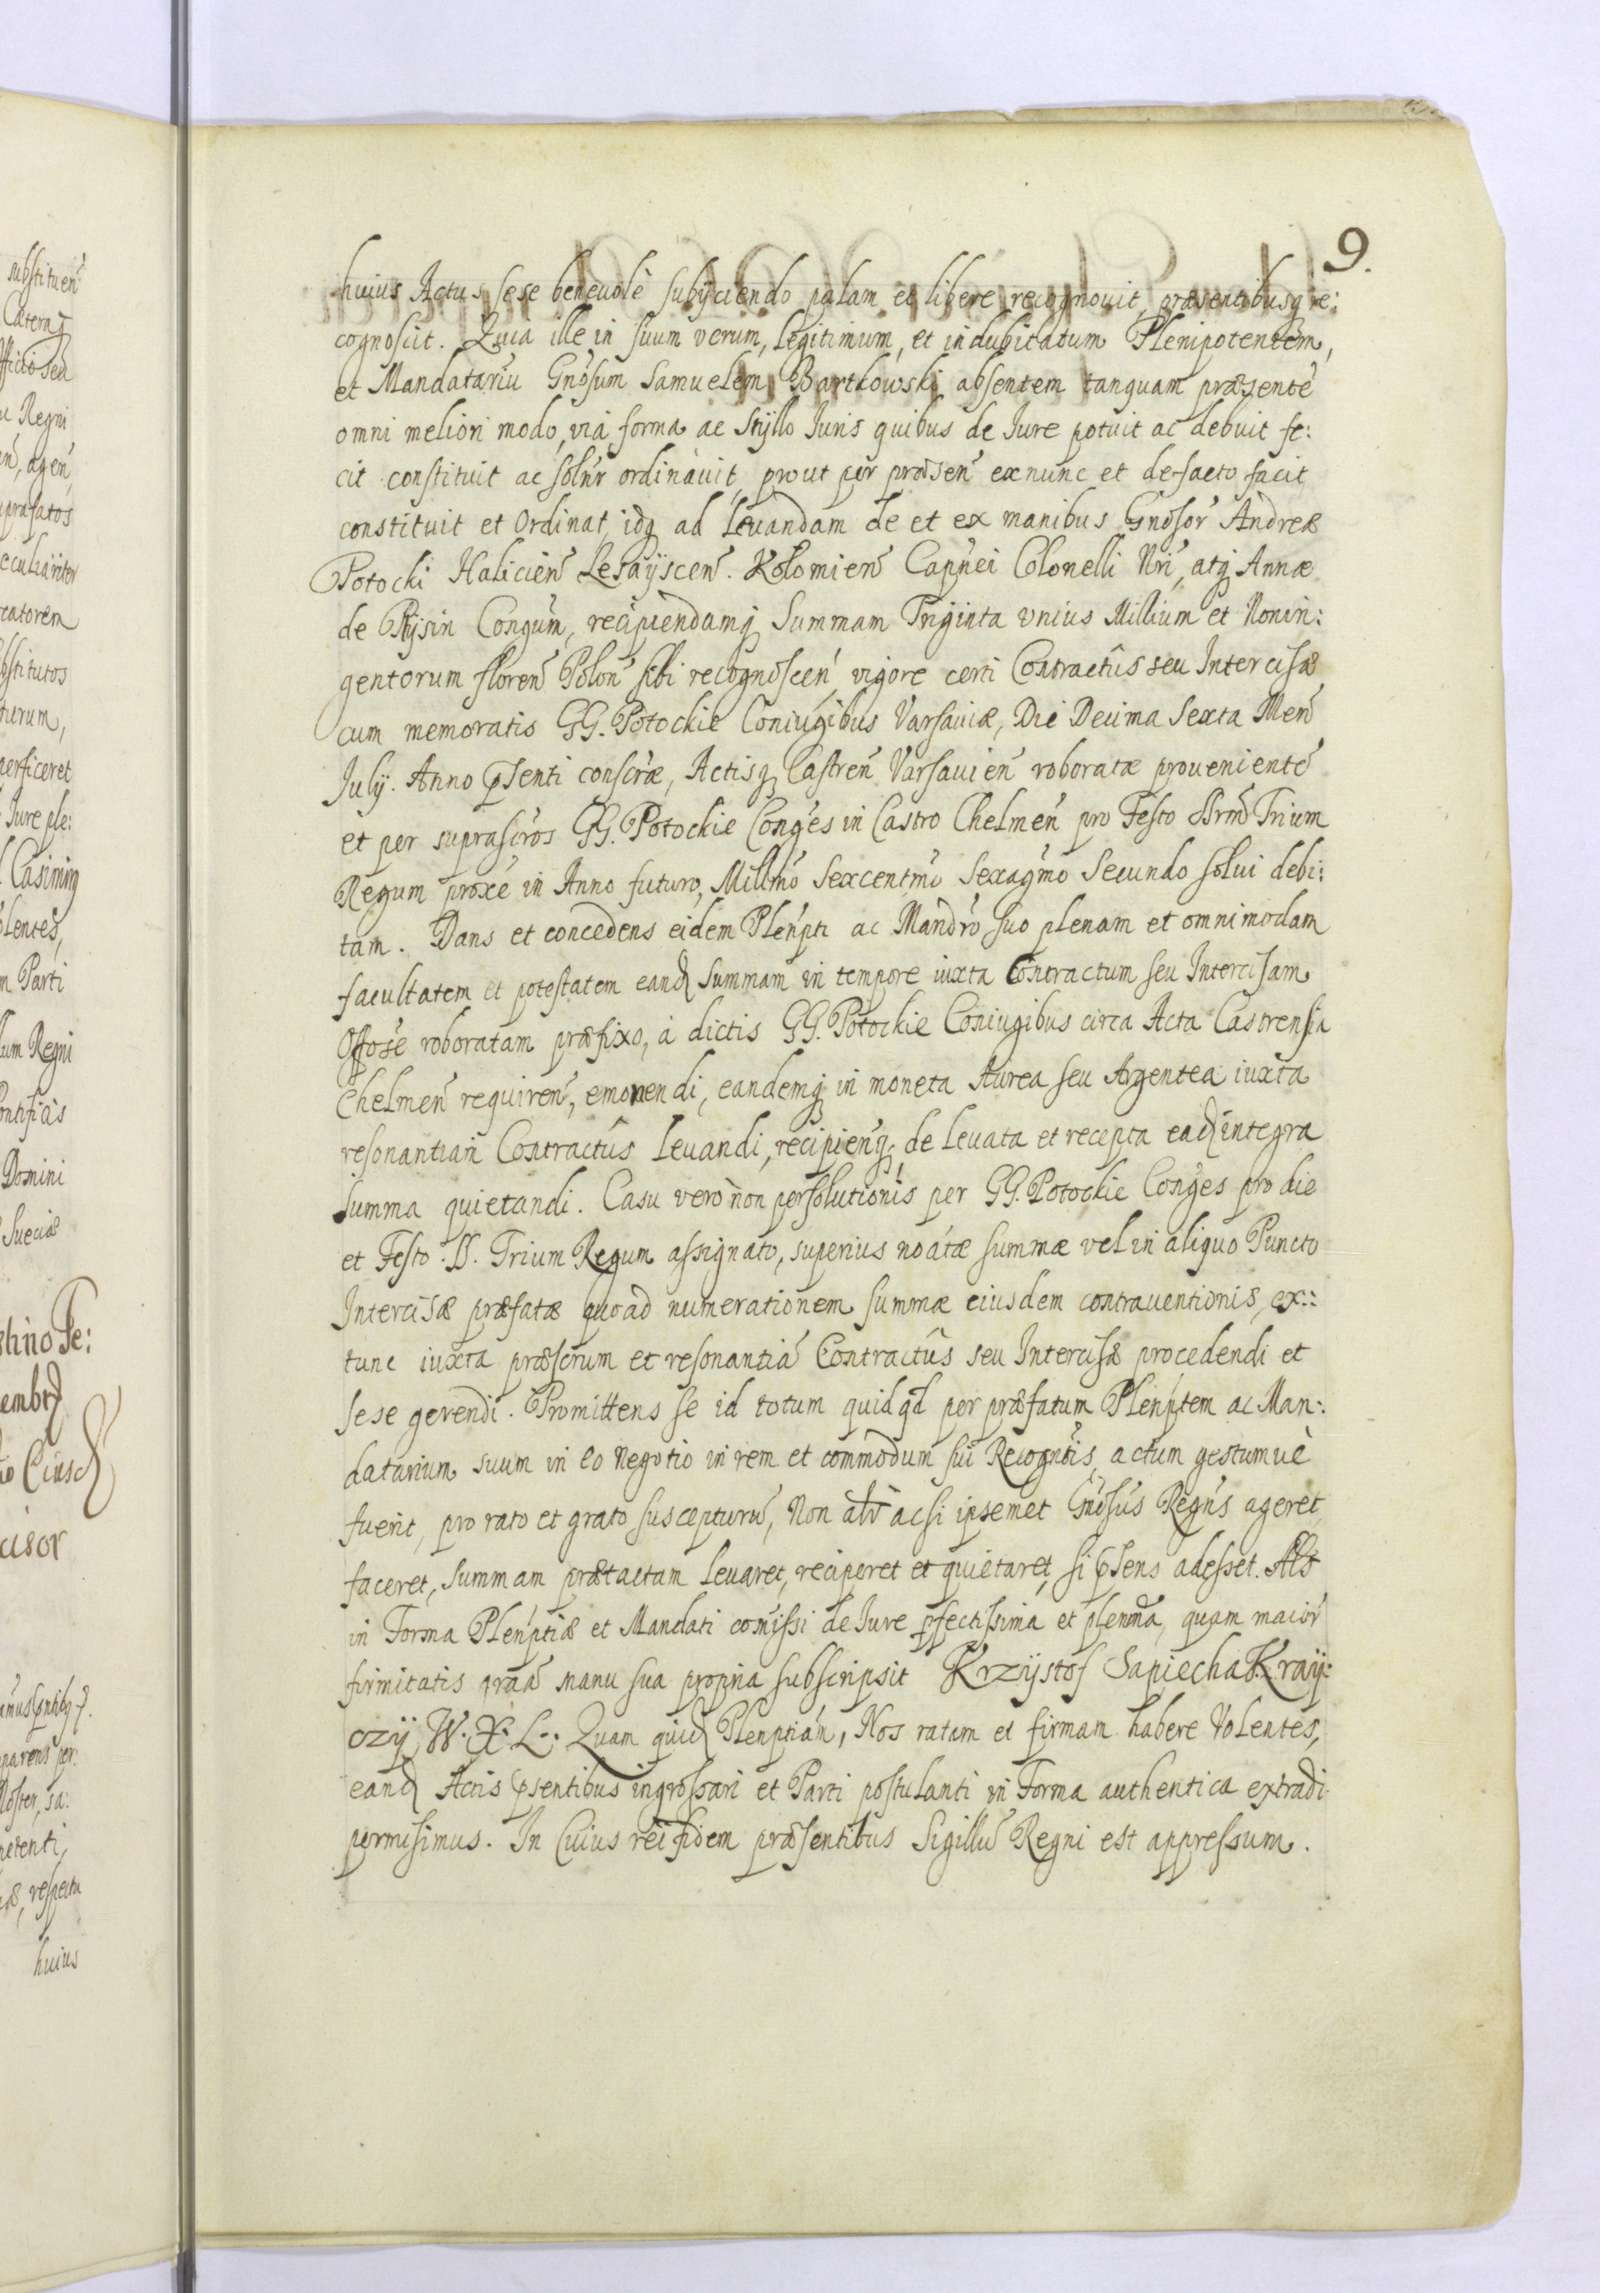 9.
huius Actus sese beneuolè subijciendo palam et libere recognouit, præsentibusq̨ re:
cognoscit. Quia ille in suum verum, legitimum, et indubitatum Plenipotentem,
et Mandatariũ Gnõsum Samuelem Bartkowski absentem tanquam præsentẽ
omni meliori modo, via forma ac Stÿllo Iuris quibus de Iure potuit ac debuit fe:
cit constituit ac solñr ordinauit, prout per præsen̄ ex nunc et de facto facit
constituit et Ordinat, idq̨ ad leuandam de et ex manibus Gnõsor̃ Andreæ
Potocki Halicien̄ Lesaÿscen̄. Kolomien̄ Capñei Colonelli Nri, atq̨ Annæ
de Rÿsin Congum̃, recipiendamq̨ Summam Triginta vnius Millium et Nonin:
gentorum floren̄ Polon̄ sibi recognoscen̄, vigore certi Contractûs seu Intercisæ
cum memoratis GG. Potockie Coniugibus Varsauiæ, Die Decima Sexta Men̄
Iulÿ. Anno p̄senti conscr̃æ, Actisq̨ Castren̄ Varsauien̄ roboratæ prouenientẽ
et per suprascr̃os GG. Potockie Conges in Castro Chelmen̄ pro Festo Trium
Regum proxe in Anno futuro, Millm̃o Sexcentm̃o Sexagm̃o Secundo solui debi:
tam. Dans et concedens eidem Pleñpti ac Mandr̃o suo plenam et omnimodam
facultatem et potestatem eand̨ Summam in tempore iuxta Contractum seu Intercisam
Offose roboratam præfixo, à dictis GG. Potockie Coniugibus circa Acta Castrensia
Chelmen̄ requiren̄, emonendi, eandemq̨ in moneta Aurea seu Argentea iuxta
resonantiam̃ Contractûs leuandi, recipienq̨. de leuata et recepta ead̨ integra
summa quietandi. Casu vero non persolutionis per GG. Potockie Conges pro die
et Festo SS. Trium Regum assignato, superius noãtæ summæ vel in aliquo Puncto
Intercisæ præfatæ quoad numerationem summæ eiusdem contrauentionis, ex::
tunc iuxta præscrum et resonantiã Contractûs seu Intercisæ procedendi et
sese gerendi. Promittens se id totum quidq̃d per præfatum Pleñptem ac Man:
datarium suum in eo negotio in rem et commodum sui Recogñtis, actum gestumuè
fuerit, pro rato et grato suscepturũ, Non alr̃ acsi ipsemet Gnõsus Regñs ageret,
faceret, Summam prætactam leuaret, reciperet et quietaret, si p̄sens adesset.
in Forma Pleñptiæ et Mandati com̃issi de Iure p̄fectissima et plenm̃a, quam maior̃
firmitatis gr̃aa manu sua propria subscripsit Krzÿstof Sapiecha Kraÿ:
czÿ W. X. L: Quam quid̨ Plenptiãm, Nos ratam et firmam habere Volentes,
eand̨ Actis p̄sentibus ingrossari et Parti postulanti in Forma authentica extradi
permisimus. In Cuius rei fidem præsentibus Sigillũ Regni est appressum.
huius